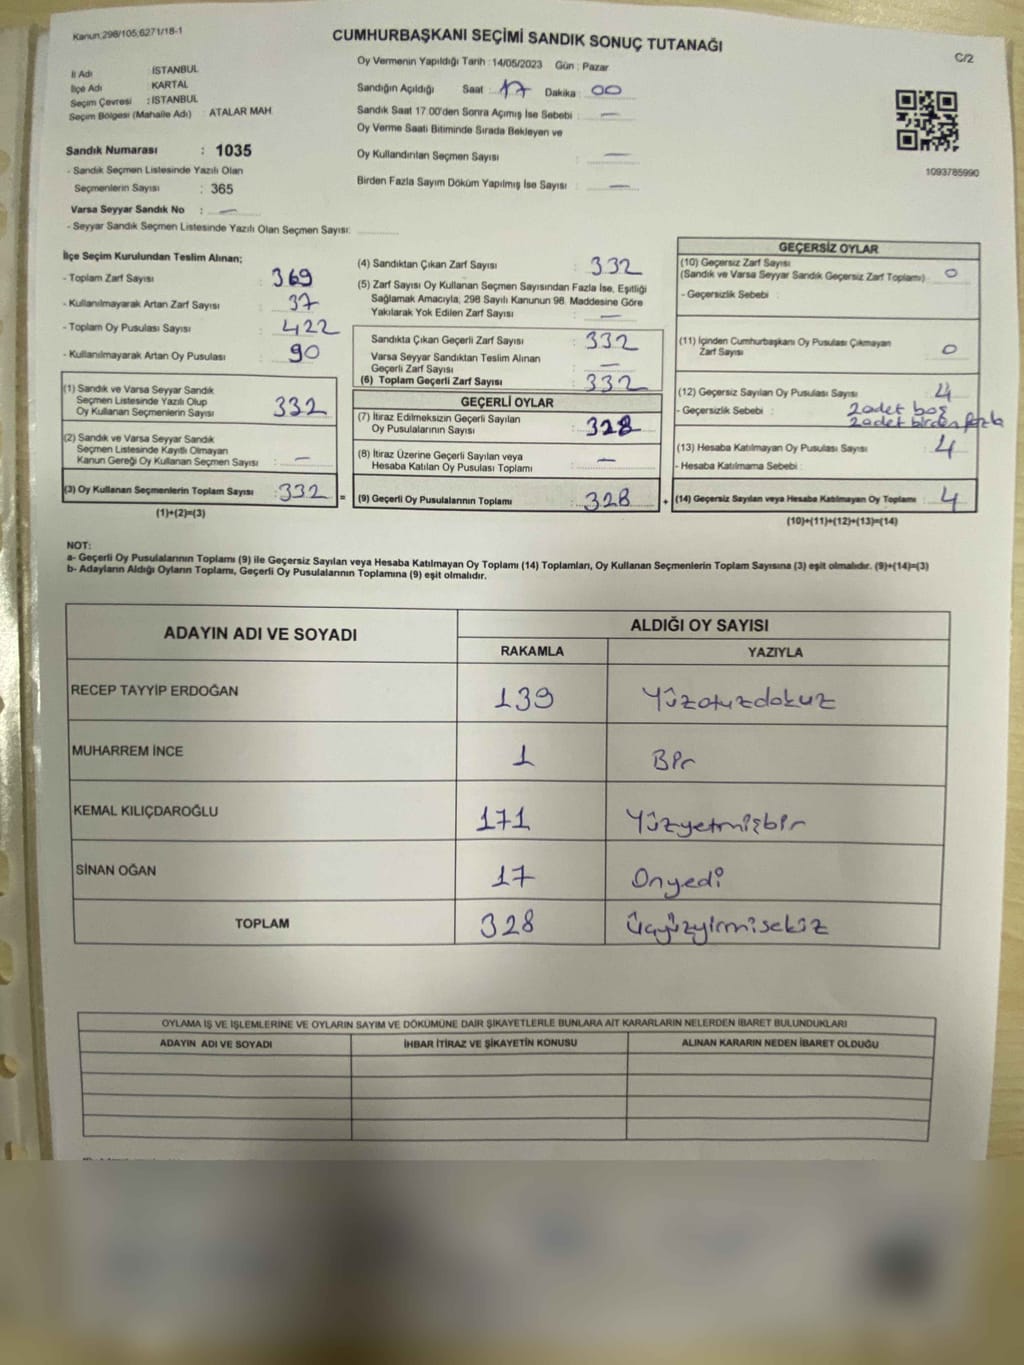 Kanun:298/105;6271/18-1
CUMHURBAŞKANI SEÇİMİ SANDIK SONUÇ TUTANAĞI
C/2
İl Adı : İSTANBUL
İlçe Adı : KARTAL
Seçim Çevresi : İSTANBUL
Seçim Bölgesi (Mahalle Adı) : ATALAR MAH
Sandık Numarası : 1035
- Sandık Seçmen Listesinde Yazılı Olan
Seçmenlerin Sayısı : 365
Varsa Seyyar Sandık No : —
- Seyyar Sandık Seçmen Listesinde Yazılı Olan Seçmen Sayısı:
Oy Vermenin Yapıldığı Tarih : 14/05/2023 Gün : Pazar
Sandığın Açıldığı Saat : 17 Dakika : 00
Sandık Saat 17.00'den Sonra Açımış İse Sebebi : —
Oy Verme Saati Bitiminde Sırada Bekleyen ve
Oy Kullandırılan Seçmen Sayısı : —
Birden Fazla Sayım Döküm Yapılmış İse Sayısı : —
1093785990
İlçe Seçim Kurulundan Teslim Alınan;
- Toplam Zarf Sayısı : 369
- Kullanılmayarak Artan Zarf Sayısı : 37
- Toplam Oy Pusulası Sayısı : 422
- Kullanılmayarak Artan Oy Pusulası : 90
(1) Sandık ve Varsa Seyyar Sandık
Seçmen Listesinde Yazılı Olup
Oy Kullanan Seçmenlerin Sayısı : 332
(2) Sandık ve Varsa Seyyar Sandık
Seçmen Listesinde Kayıtlı Olmayan
Kanun Gereği Oy Kullanan Seçmen Sayısı : —
(3) Oy Kullanan Seçmenlerin Toplam Sayısı : 332 =
(1)+(2)=(3)
(4) Sandıktan Çıkan Zarf Sayısı : 332
(5) Zarf Sayısı Oy Kullanan Seçmen Sayısından Fazla İse, Eşitliği
Sağlamak Amacıyla, 298 Sayılı Kanunun 98. Maddesine Göre
Yakılarak Yok Edilen Zarf Sayısı : —
Sandıkta Çıkan Geçerli Zarf Sayısı : 332
Varsa Seyyar Sandıktan Teslim Alınan
Geçerli Zarf Sayısı : —
(6) Toplam Geçerli Zarf Sayısı : 332
GEÇERLİ OYLAR
(7) İtiraz Edilmeksizin Geçerli Sayılan
Oy Pusulalarının Sayısı : 328
(8) İtiraz Üzerine Geçerli Sayılan veya
Hesaba Katılan Oy Pusulası Toplamı : —
(9) Geçerli Oy Pusulalarının Toplamı : 328 +
GEÇERSİZ OYLAR
(10) Geçersiz Zarf Sayısı
(Sandık ve Varsa Seyyar Sandık Geçersiz Zarf Toplamı) : 0
- Geçersizlik Sebebi :
(11) İçinden Cumhurbaşkanı Oy Pusulası Çıkmayan
Zarf Sayısı : 0
(12) Geçersiz Sayılan Oy Pusulası Sayısı : 4
- Geçersizlik Sebebi : 2 adet boş
2 adet birden fazla
(13) Hesaba Katılmayan Oy Pusulası Sayısı : 4
- Hesaba Katılmama Sebebi :
(14) Geçersiz Sayılan veya Hesaba Katılmayan Oy Toplamı : 4
(10)+(11)+(12)+(13)=(14)
NOT:
a- Geçerli Oy Pusulalarının Toplamı (9) ile Geçersiz Sayılan veya Hesaba Katılmayan Oy Toplamı (14) Toplamları, Oy Kullanan Seçmenlerin Toplam Sayısına (3) eşit olmalıdır. (9)+(14)=(3)
b- Adayların Aldığı Oyların Toplamı, Geçerli Oy Pusulalarının Toplamına (9) eşit olmalıdır.
ADAYIN ADI VE SOYADI
ALDIĞI OY SAYISI
RAKAMLA YAZIYLA
RECEP TAYYİP ERDOĞAN 139 Yüzotuzdokuz
MUHARREM İNCE 1 Bir
KEMAL KILIÇDAROĞLU 171 Yüzyetmişbir
SİNAN OĞAN 17 Onyedi
TOPLAM 328 Üçyüzyirmisekiz
OYLAMA İŞ VE İŞLEMLERİNE VE OYLARIN SAYIM VE DÖKÜMÜNE DAİR ŞİKAYETLERLE BUNLARA AİT KARARLARIN NELERDEN İBARET BULUNDUKLARI
ADAYIN ADI VE SOYADI İHBAR İTİRAZ VE ŞİKAYETİN KONUSU ALINAN KARARIN NEDEN İBARET OLDUĞU